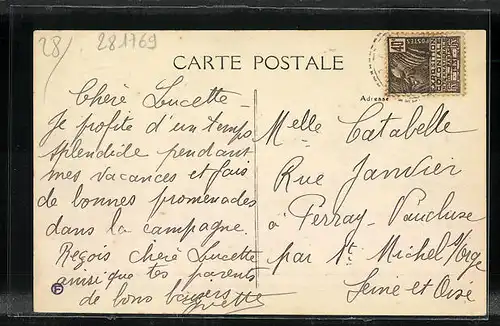 28/
281769
CARTE POSTALE
Adresse
Chère Lucette -
Je profite d'un temps
splendide pendant
mes vacances et fais
de bonnes promenades
dans la campagne.
Reçois chère Lucette
ainsi que tes parents
de bons baisers
Yvette
Melle Catabelle
Rue Janvier
à Perray-Vaucluse
par St Michel s/Orge
Seine et Oise